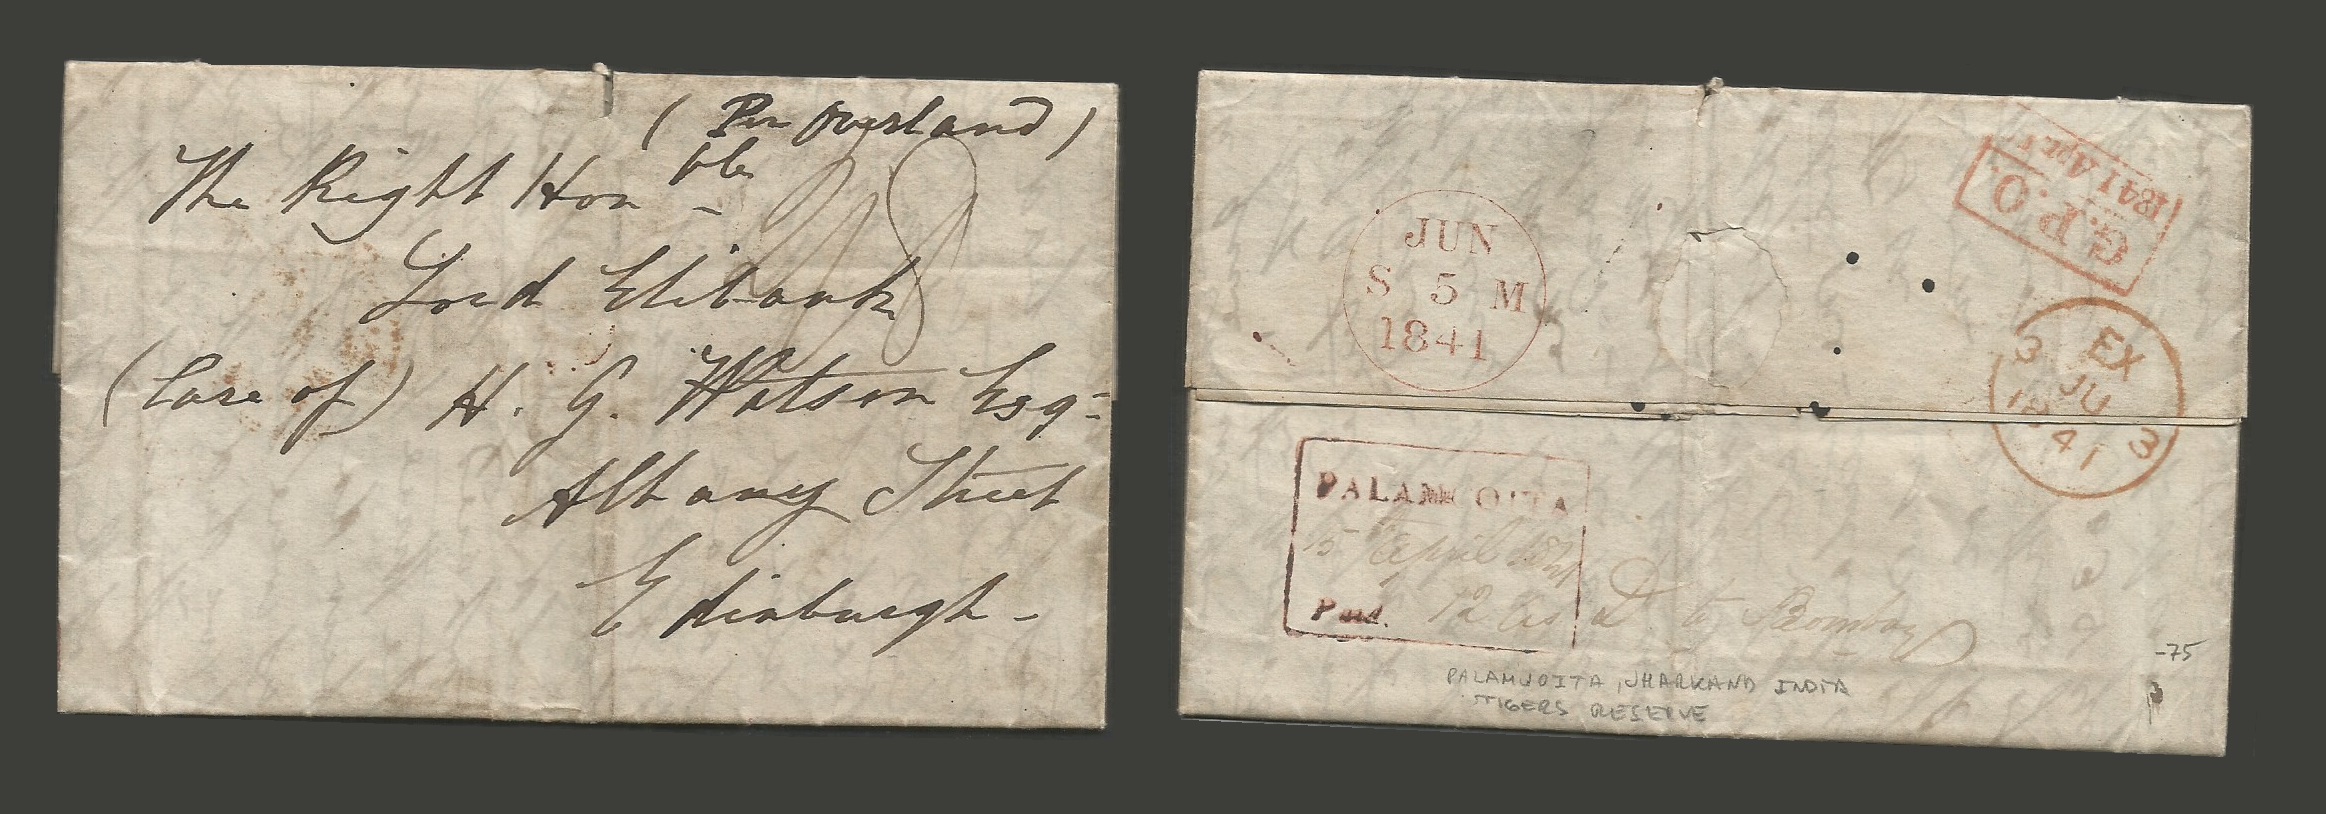 (Per Overland)
The Right Honble
Lord Elibank
(Care of) H. G. Watson Esqr
Albany Street
Edinburgh -
JUN
S 5 M
1841
G.P.O.
1841 Apr
EX
3 JU 3
1841
PALAMCOTTA
15 April 1841
Paid. 12 as D to Bombay
-75
PALAMUOITA, JHARKAND INDIA
TIGERS RESERVE